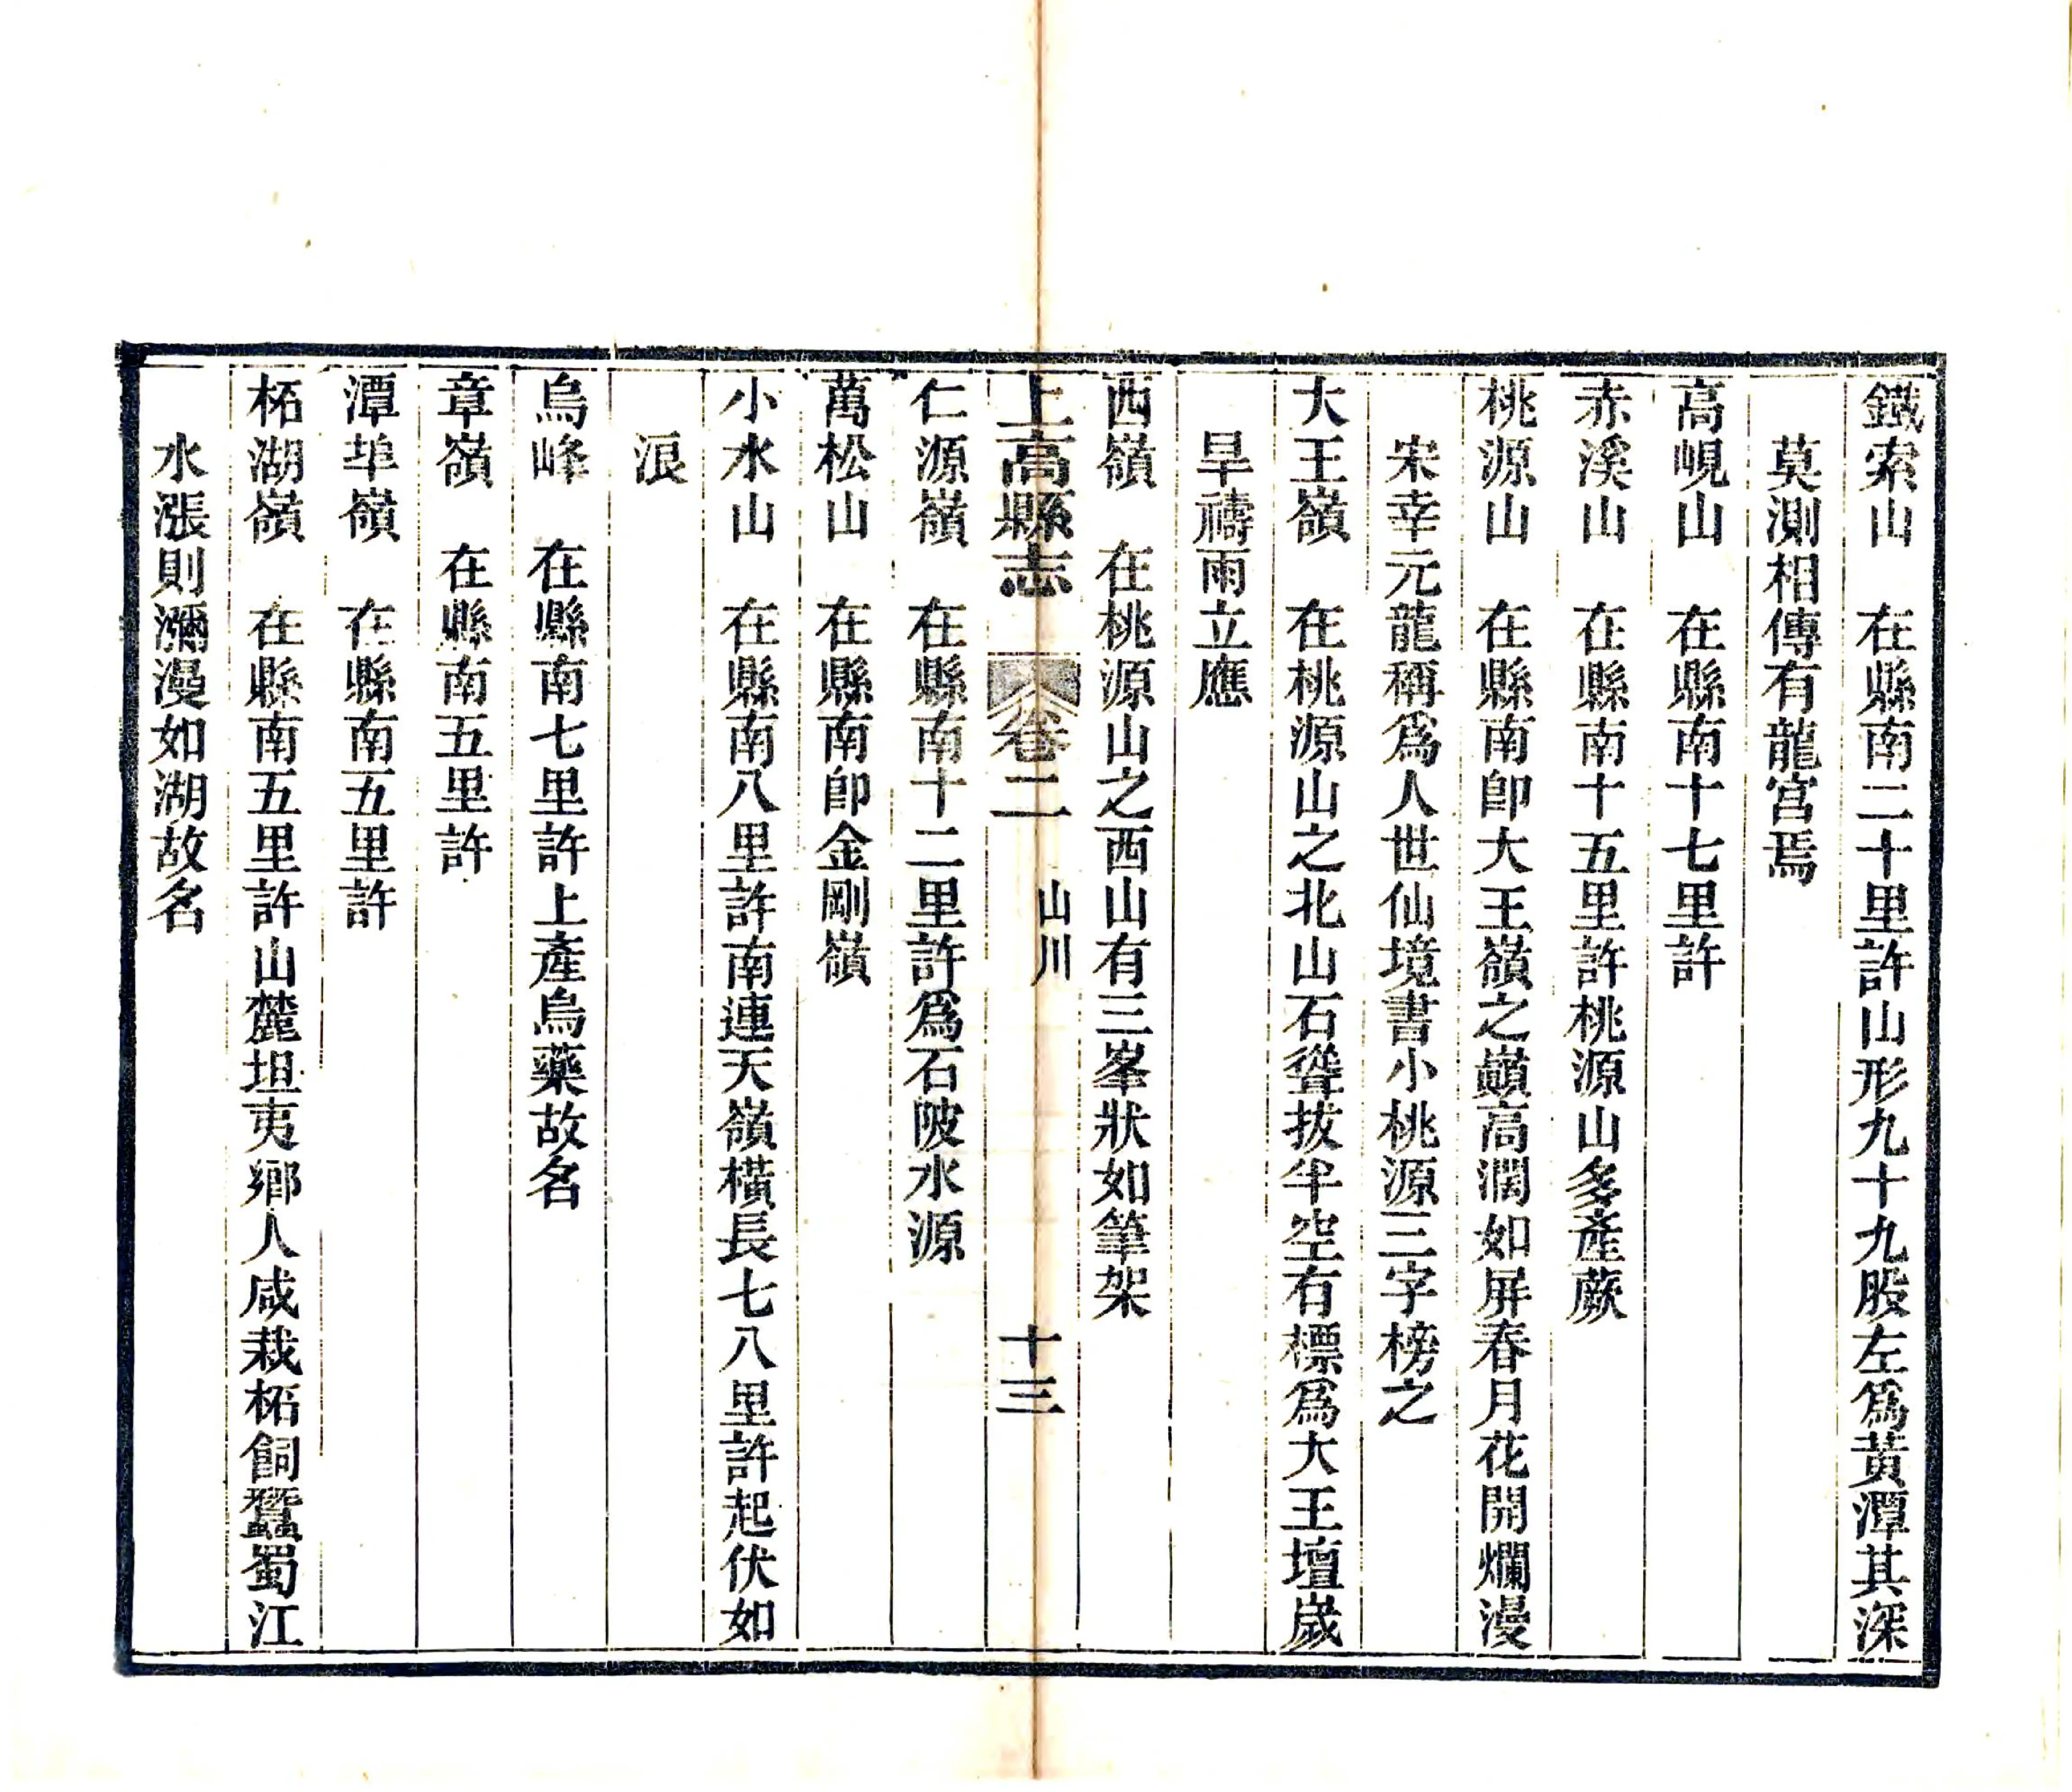 鐵索山　在縣南二十里許山形九十九股左爲黃潭其深
莫測相傳有龍宮焉
高峴山　在縣南十七里許
赤溪山　在縣南十五里許桃源山多產蕨
桃源山　在縣南卽大王嶺之巔高濶如屏春月花開爛漫
宋幸元龍稱爲人世仙境書小桃源三字榜之
大王嶺　在桃源山之北山石聳拔半空有標爲大王壇歲
旱禱雨立應
西嶺　在桃源山之西山有三峯狀如筆架
上高縣志　卷二　山川　十三
仁源嶺　在縣南十二里許爲石陂水源
萬松山　在縣南卽金剛嶺
小水山　在縣南八里許南連天嶺橫長七八里許起伏如
浪
烏峰　在縣南七里許上產烏藥故名
章嶺　在縣南五里許
潭埠嶺　在縣南五里許
柘湖嶺　在縣南五里許山麓坦夷鄉人咸栽柘飼蠶蜀江
水漲則瀰漫如湖故名